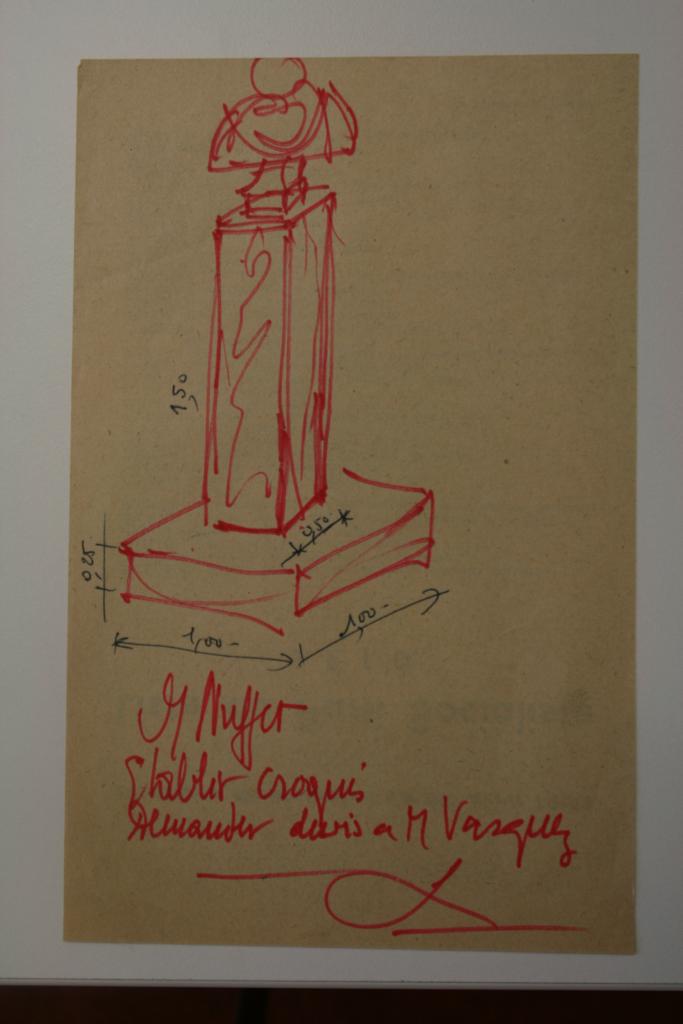 1,50
0,50-
0,25
1,00-
1,00-
M Nuffer
Etablir croquis
demander devis a M Vasquez